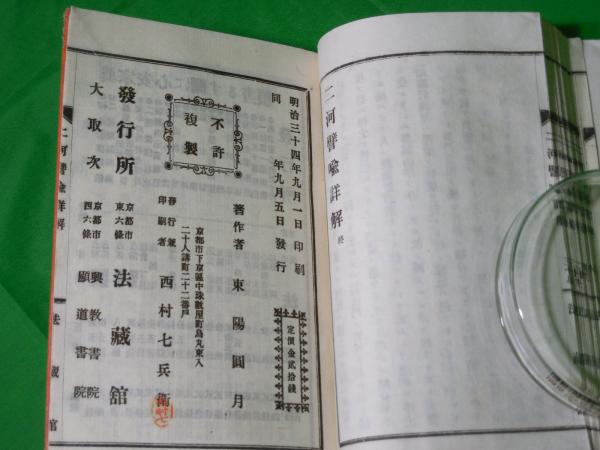 二河譬喩詳解 終
明治三十四年九月一日印刷
同 年九月五日發行
不許
複製
定價金貳拾錢
著作者 東陽圓月
京都市下京區中珠數屋町烏丸東入
二十人講町二十二番戸
發行兼
印刷者 西村七兵衛
發行所 京都市東六條 法藏館
大取次 京都市 興教書院
西六條 顯道書院
二河譬喩詳解
法藏館